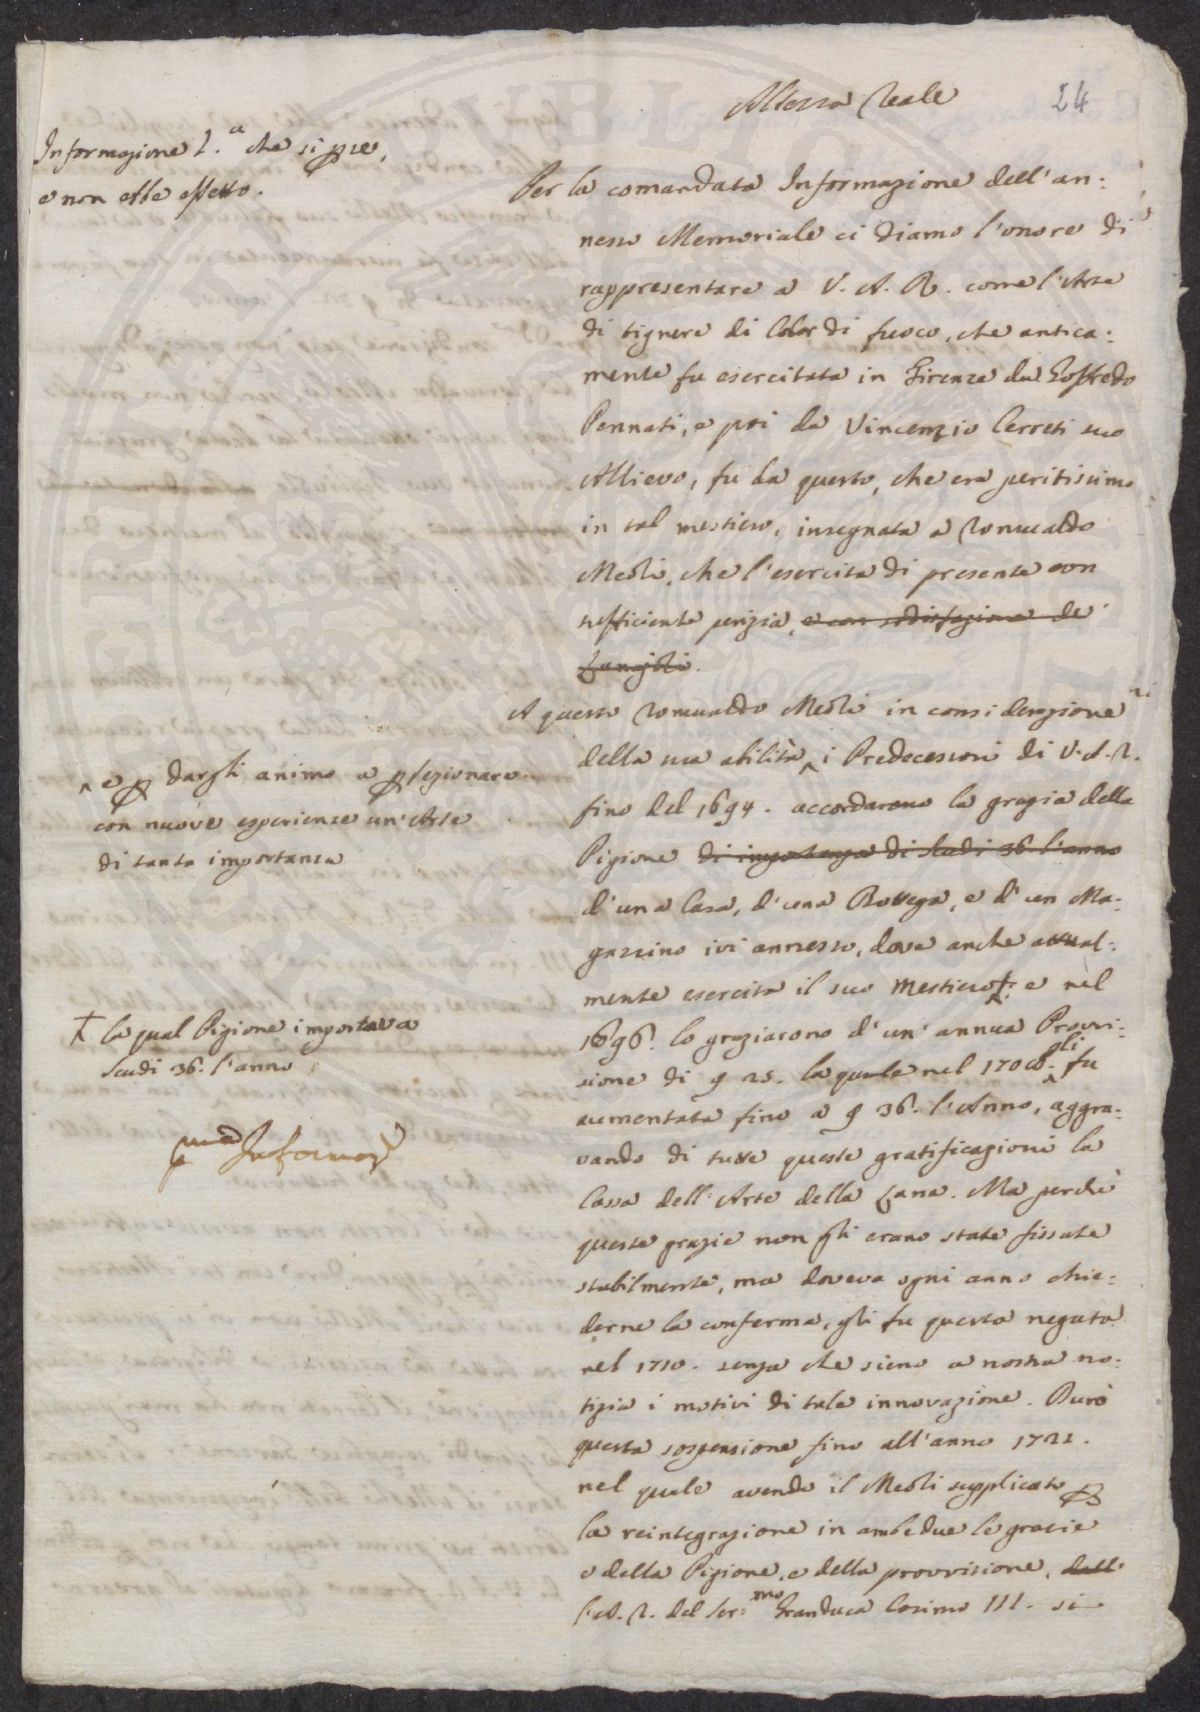 Altezza Reale
24
Informazione 2.a che si fece,
e non ebbe effetto.
Per la comandata Informazione dell'an=
nesso Memoriale ci diamo l'onore di
rappresentare a V. A. R. come l'Arte
di tignere di Color di fuoco, che antica=
mente fu esercitata in Firenze da Goffredo
Pennati, e poi da Vincenzio Cerreti suo
Allievo, fu da questo, che era peritissimo
in tal mestiero, insegnata a Romualdo
Meoli, che l'esercita di presente con
sufficiente perizia, e con sodisfazione de'
Lanajoli.
A questo Romualdo Meoli in considerazione
della sua abilità ^ i Predecessori di V. A. R.
^ e p dargli animo a pfezionare
con nuove esperienze un'Arte
di tanta importanza
fino del 1694. accordarono la grazia della
Pigione di importanza di Scudi 36 l'anno
d'una Casa, d'una Bottega, e d'un Ma=
gazzino ivi annesso, dove anche attual=
mente esercita il suo mestiero: e nel
+ la qual Pigione importava
Scudi 36. l'anno
1696. lo graziarono d'un'annua Provvi=
sione di 25. la quale nel 1700. gli fu
aumentata fino a 36. l'Anno, aggra=
vando di tutte queste gratificazioni la
Cassa dell'Arte della Lana. Ma perchè
queste grazie non gli erano state fissate
stabilmente, ma doveva ogni anno chie=
derne la conferma, gli fu questa negata
nel 1710. senza che sieno a nostra no=
tizia i motivi di tale innovazione. Durò
questa sospensione fino all'anno 1721.
nel quale avendo il Meoli supplicato p
la reintegrazione in ambedue le grazie
e della Pigione, e della provvisione, dall'
l'A. R. del Ser:mo Granduca Cosimo III. si
pma Informaz